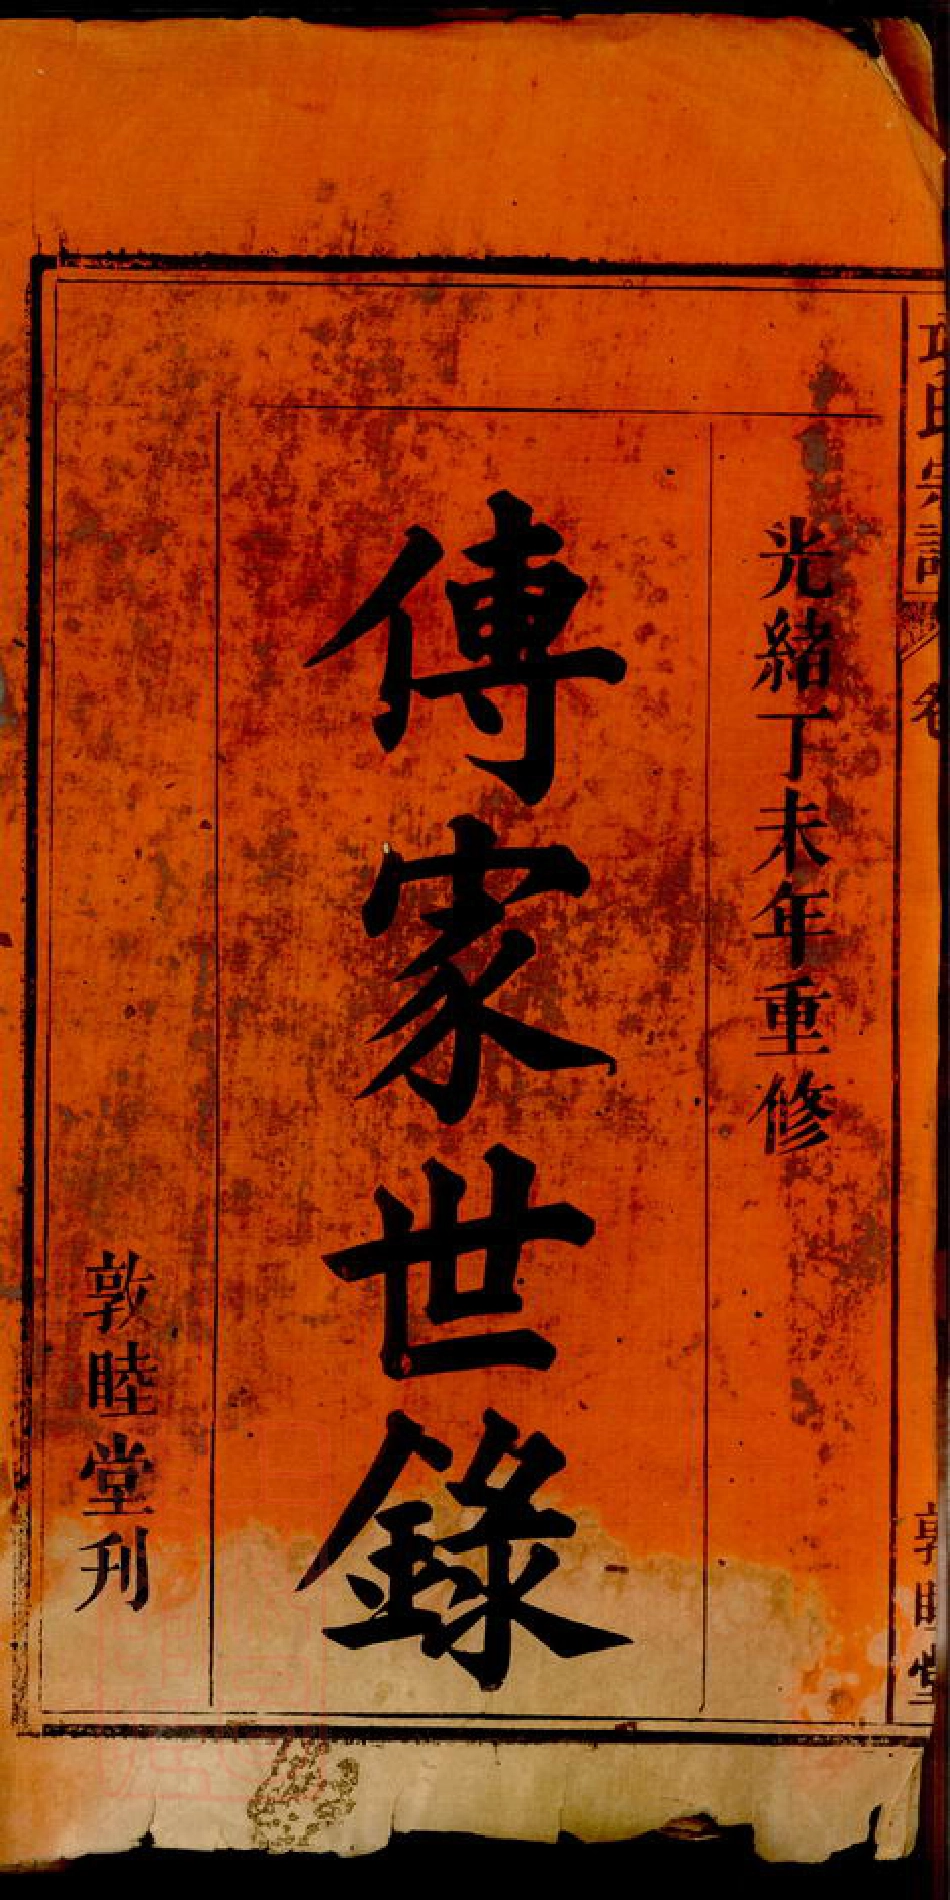 光緒丁未年重修
傳家世錄
敦睦堂刋
氏宗譜
卷
敦睦堂